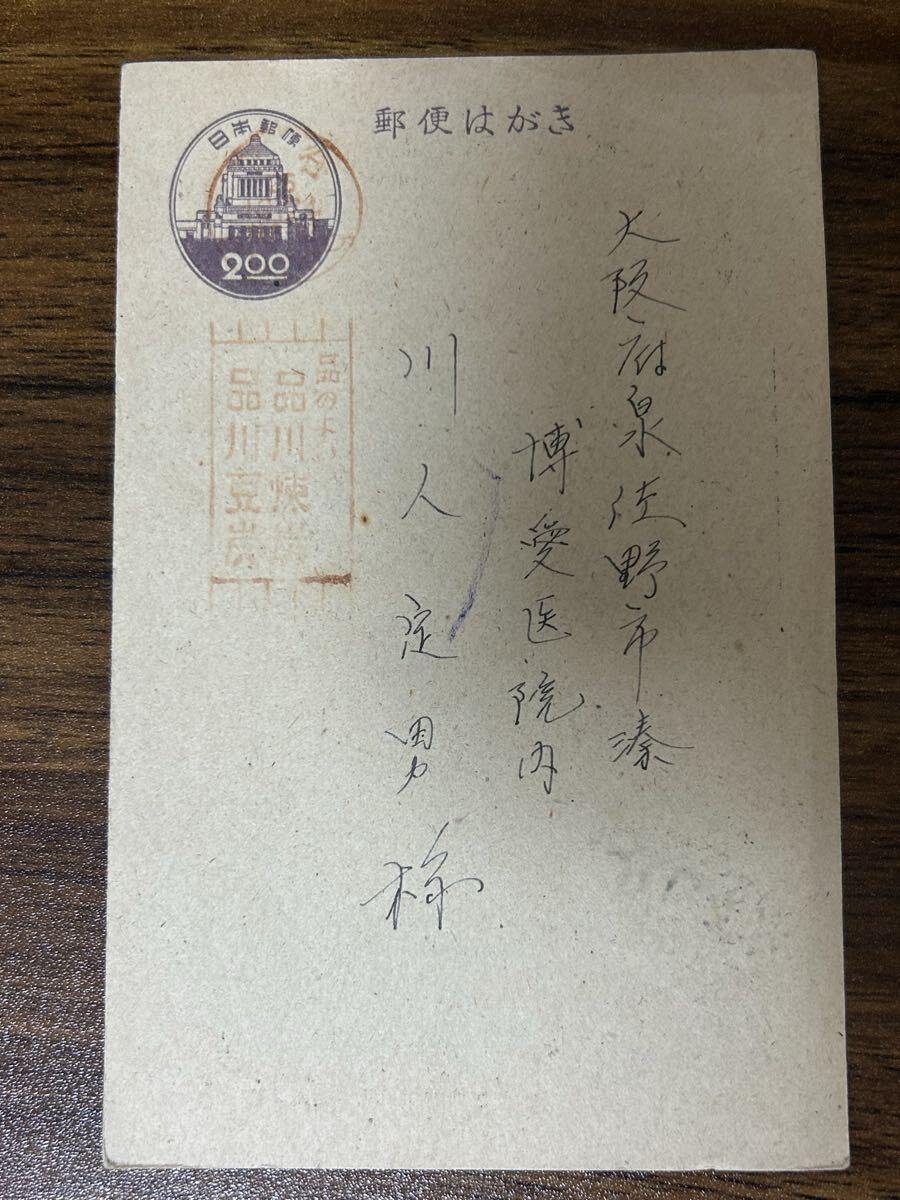 郵便はがき
日本郵便
200
大阪府泉佐野市湊
博愛医院内
川人定男様
品の
品川煉
品川豆炭